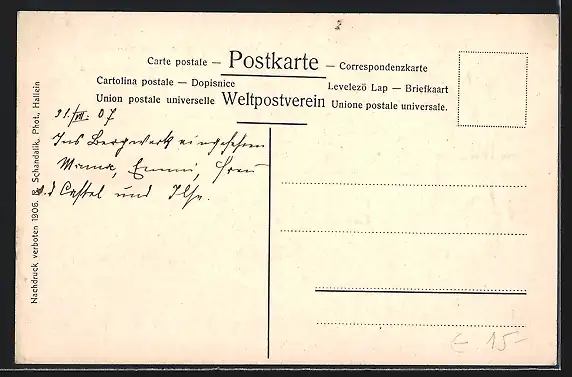 Carte postale — Postkarte — Correspondenzkarte
Cartolina postale — Dopisnice
Levelező Lap — Briefkaart
Union postale universelle Weltpostverein Unione postale universale.
21./VII. 07
Ins Bergwerk eingefahren
Mama, Emmi, Frau
v. d Castel und Ilse.
Nachdruck verboten 1906. R. Schandalik, Phot., Hallein
€ 15-